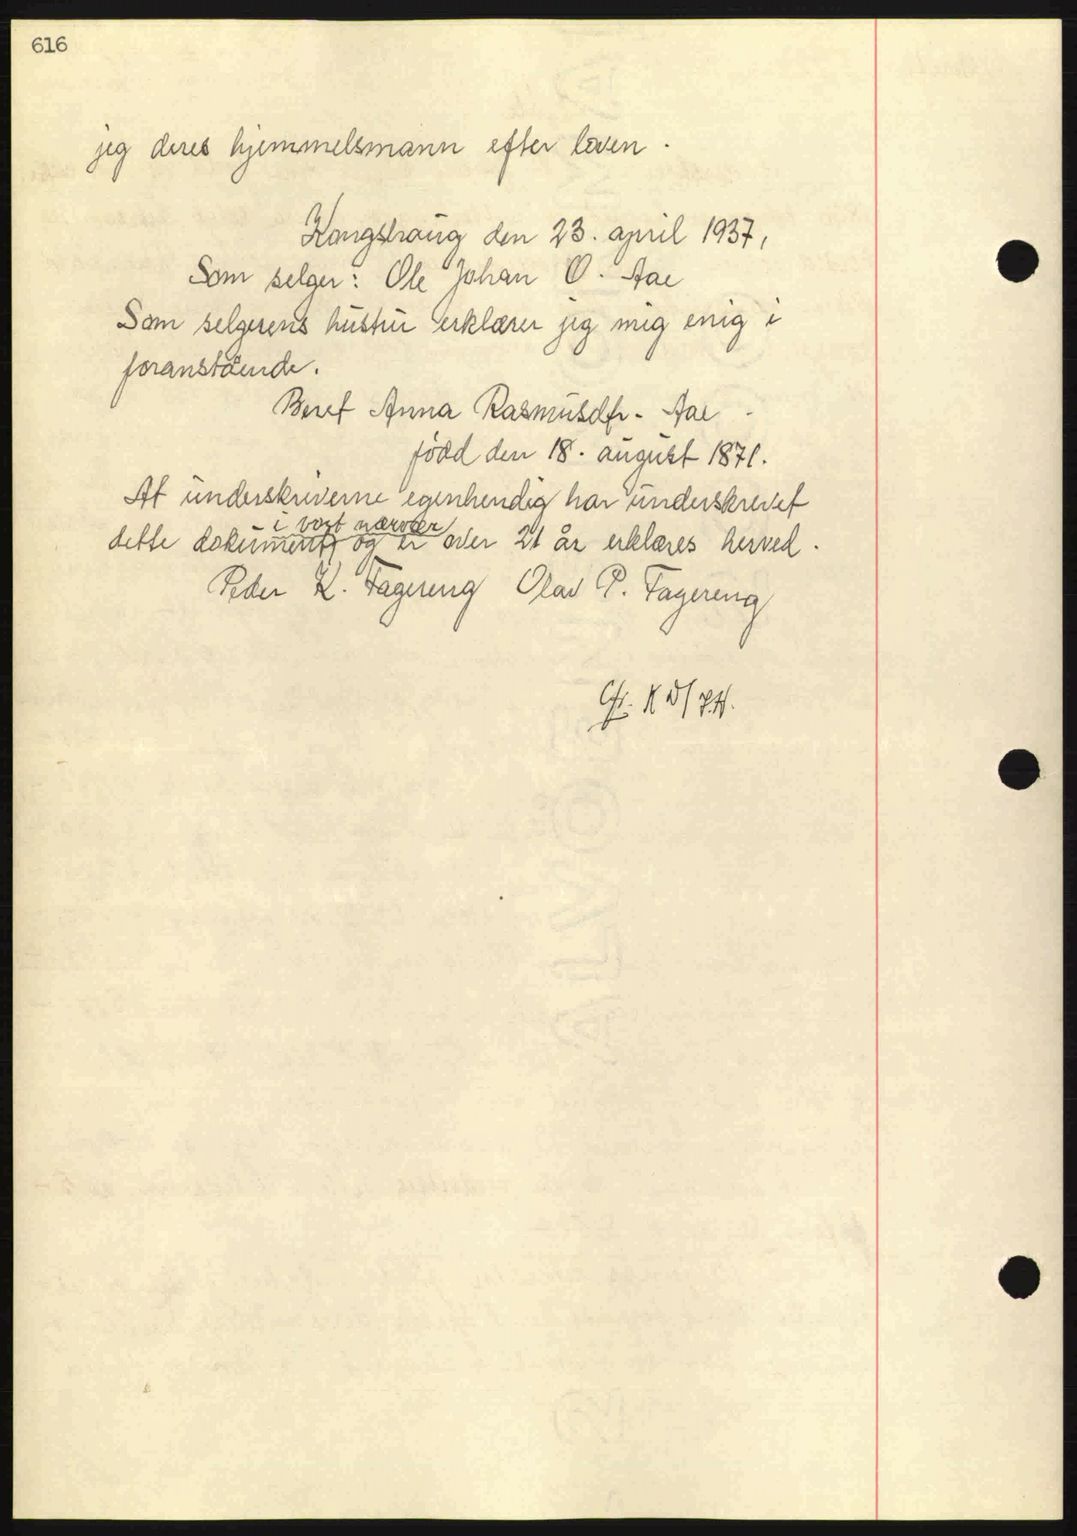 616
jeg deres hjemmelsmann efter loven.
Kongshaug den 23. april 1937,
Som selger: Ole Johan O. Aae
Som selgerens hustru erklærer jeg mig enig i
foranstående.
Beret Anna Rasmusdtr. Aae
född den 18. august 1871.
At underskriverne egenhendig har underskrevet
i vort nærvær
dette dokument og er over 21 år erklæres herved.
Peder K. Fagereng Olav P. Fagereng
Cfr. K W/J.H.